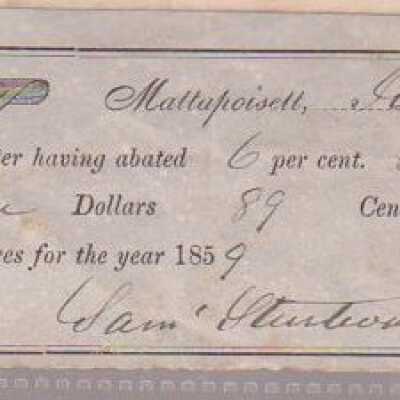 Mattapoisett,
er having abated 6 per cent.
Dollars 89 Cen
es for the year 1859
Sam'